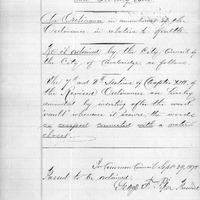 An Ordinance in amendment of the
Ordinance in relation to
Be it ordained by the City Council of
the City of Cambridge, as follows.
The 7th and 8th Sections of Chapter XIII of
the Revised Ordinances are hereby
amended by inserting after the word
vault wherever it occurs, the words
or cesspool connected with a water
closet.
In Common Council Sept 29, 1875
Passed to be ordained.
Geo. F. President